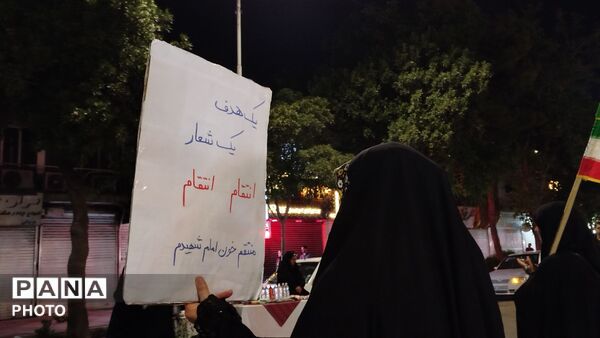 یک هدف
یک شعار
انتقام انتقام
منتقم خون امام شهیدم
PANA
PHOTO